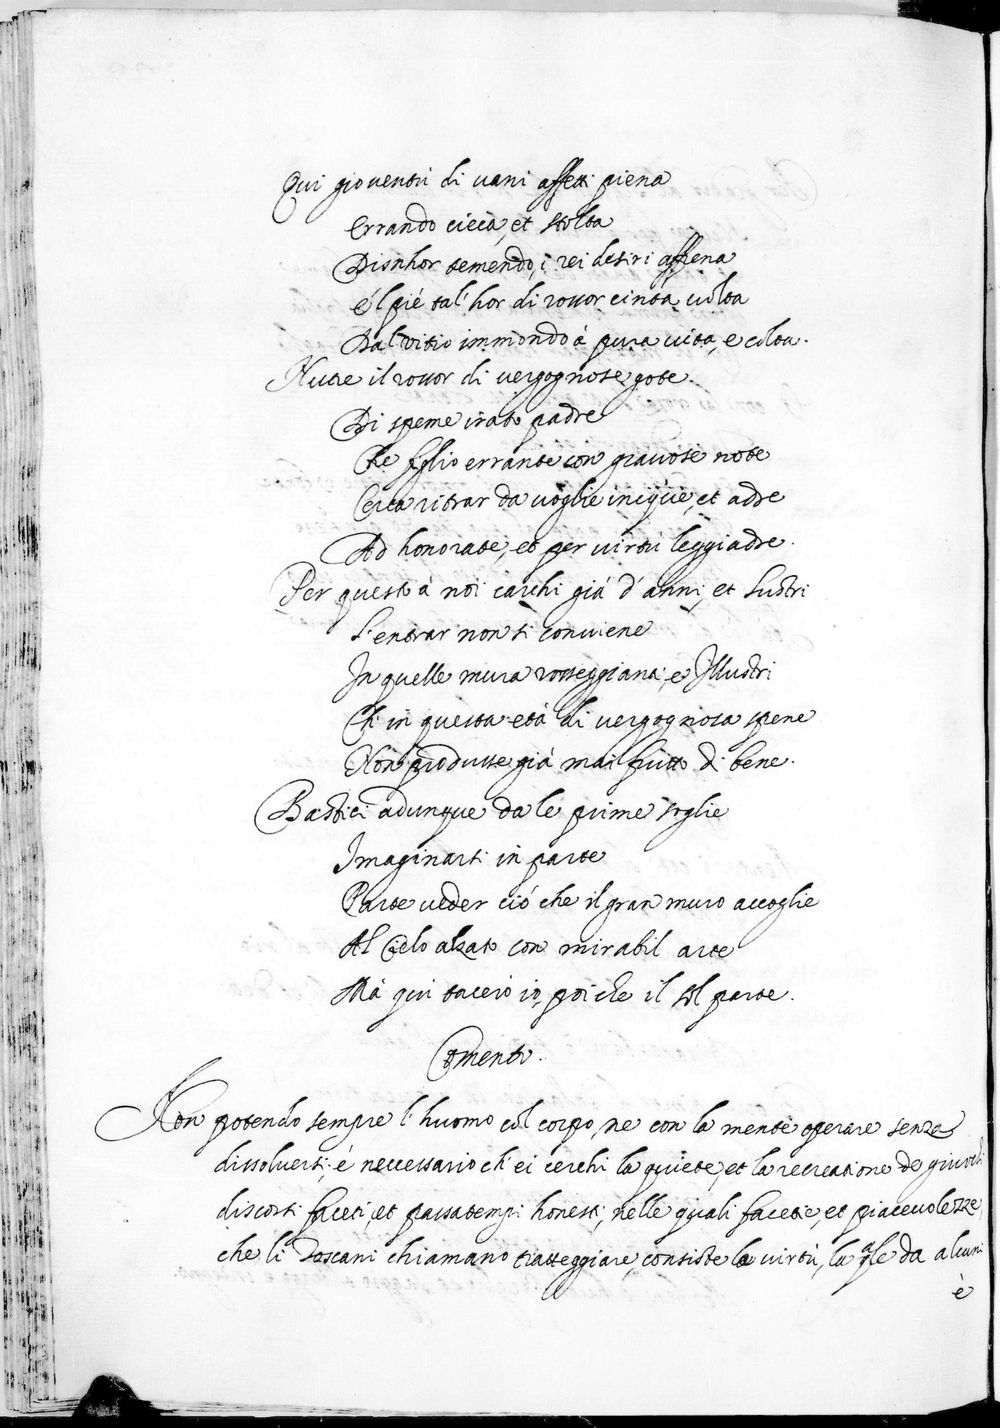 Qui gioventù di vani affetti piena
Errando cieca, et stolta
Disnhor temendo, i rei desiri affrena
E'l piè tal'hor di rossor cinta volta
Dal vitio immondo à pura vita, e colta.
Nutre il rossor di vergognose gote
Di speme irato padre
Che figlio errante con gravose note
Cerca ritrar da voglie inique, et adre
Ad honorate, et per virtù leggiadre.
Per questo à noi carchi già d'anni, et lustri
L'entrar non si conviene
In quelle mura rosseggianti, et Illustri
Ch'in questa età di vergognosa spene
Non produsse già mai frutto di bene.
Bastici adunque da le prime soglie
Imaginarsi in parte
Parte veder ciò che il gran muro accoglie
Al Cielo alzato con mirabil arte
Mà qui tacerò io, poi che il sol parte.
Comento.
Non potendo sempre l'huomo col corpo, ne con la mente operare senza
dissolversi, è neccessario ch'ei cerchi la quiete, et la recreatione de giuochi
discorsi faceti, et passatempi honesti, nelle quali facetie, et piacevolezze
che li Toscani chiamano motteggiare, consiste la virtù, la qle da alcuni
è